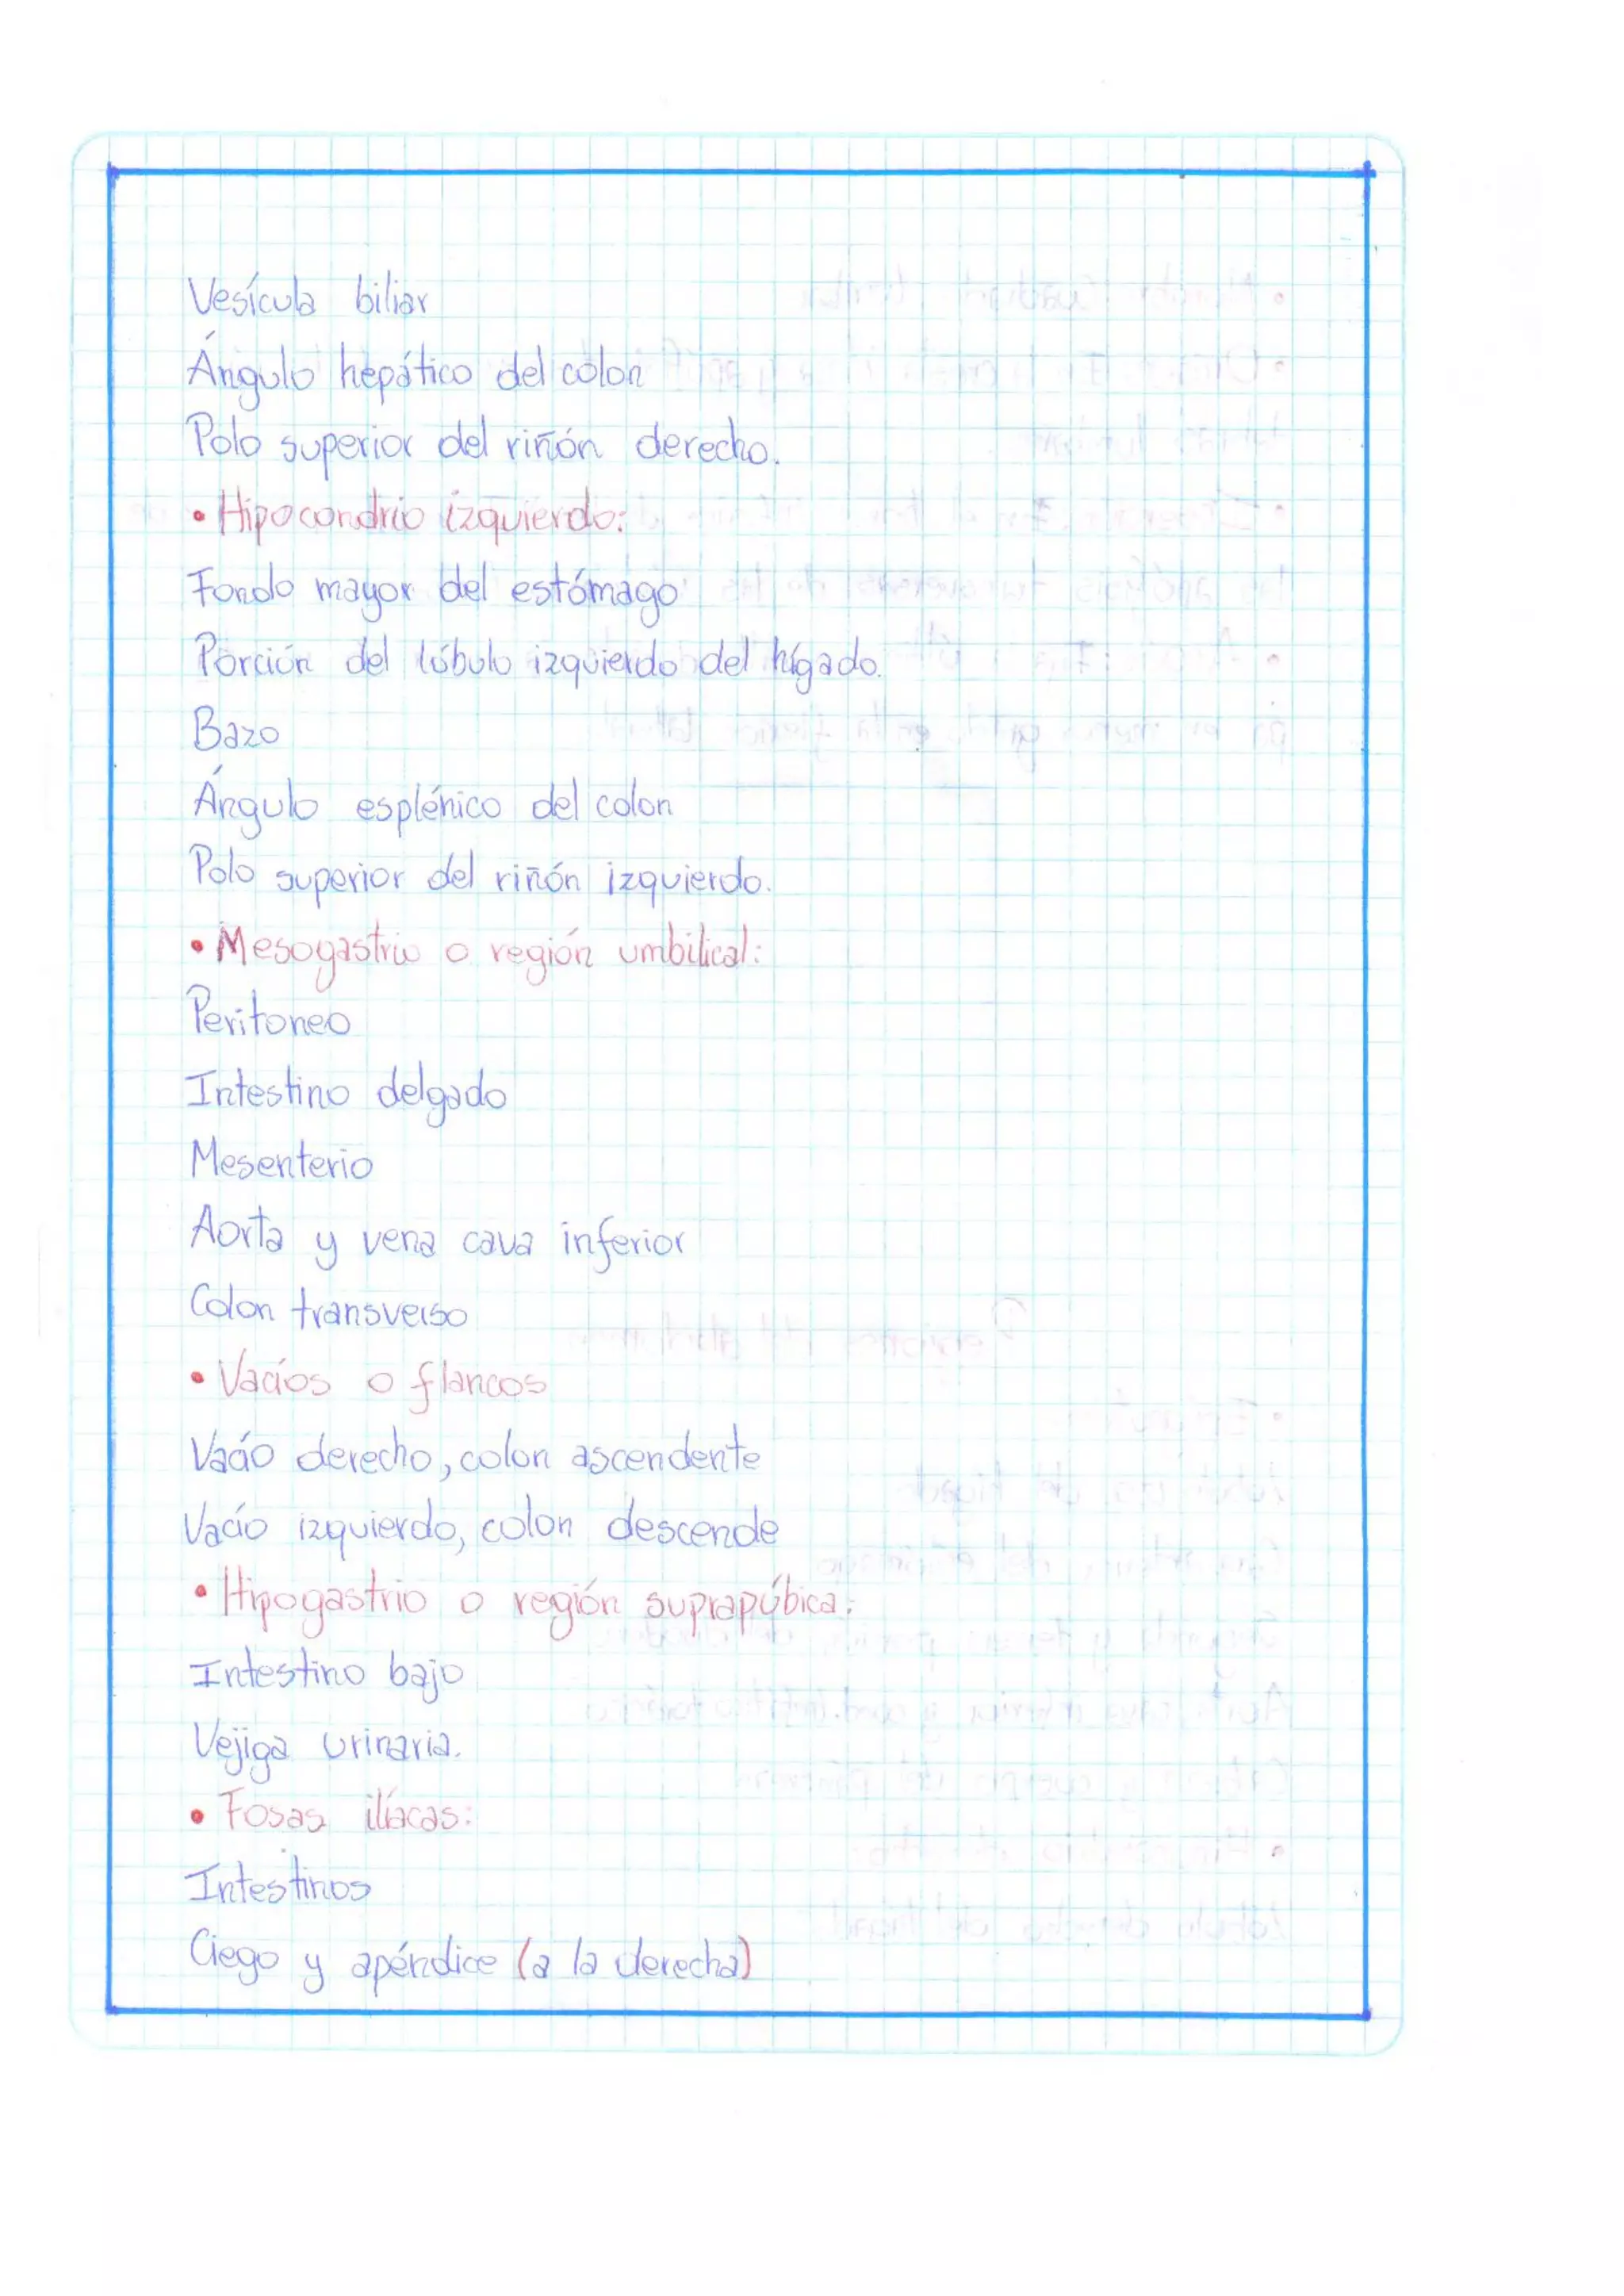 Vesícula biliar
Ángulo hepático del colon
Polo superior del riñón derecho.
• Hipocondrio izquierdo:
Fondo mayor del estómago
Porción del lóbulo izquierdo del hígado.
Bazo
Ángulo esplénico del colon
Polo superior del riñón izquierdo.
• Mesogastrio o región umbilical:
Peritoneo
Intestino delgado
Mesenterio
Aorta y vena cava inferior
Colon transverso
• Vacíos o flancos
Vacío derecho, colon ascendente
Vacío izquierdo, colon descende
• Hipogastrio o región suprapúbica:
Intestino bajo
Vejiga urinaria.
• Fosas ilíacas:
Intestinos
Ciego y apéndice (a la derecha)